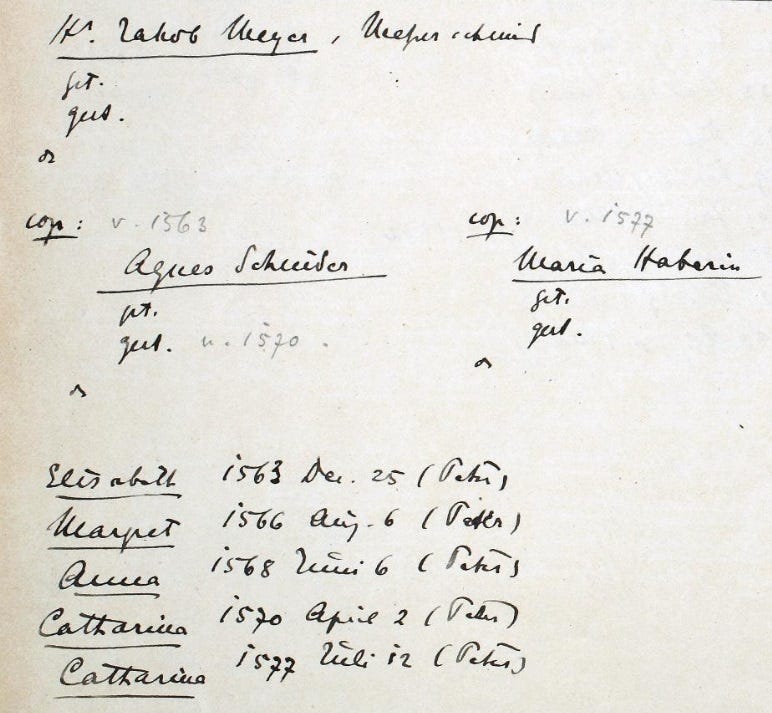 Hr. Jakob Meyer, Messerschmid
get.
gest.
cop: v. 1563
Agnes Schnider
get.
gest. n. 1570.
cop: v. 1577
Maria Haberin
get.
gest.
Elisabeth 1563 Dec. 25 (Peter)
Margret 1566 Aug. 6 (Peter)
Anna 1568 Juni 6 (Peter)
Catharina 1570 April 2 (Peter)
Catharina 1577 Juli 12 (Peter)